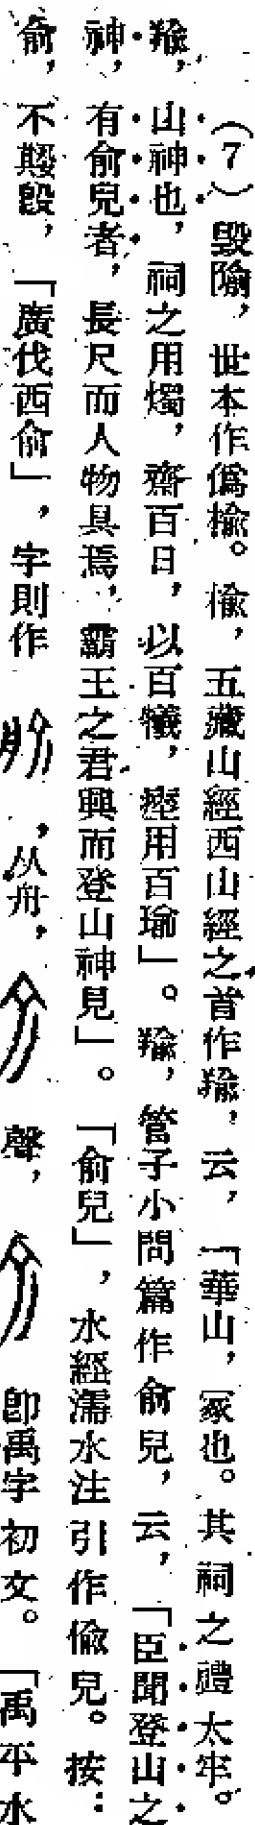 （7）毁隃，世本作僞榆。榆，五藏山經西山經之首作羭，云，「華山，冢也。其祠之禮太牢。
羭，山神也，祠之用燭，齋百日，以百犧，瘞用百瑜」。羭，管子小問篇作俞兒，云，「臣聞登山之
神，有俞兒者，長尺而人物具焉，霸王之君興而登山神見」。「俞兒」，水經濡水注引作偷兒。按：
俞，不𡢁𣪘，「廣伐西俞」，字則作，从舟，聲，卽禹字初文。「禹平水